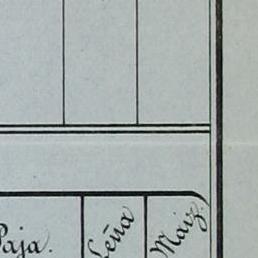 Paja.
Leña
Maiz.